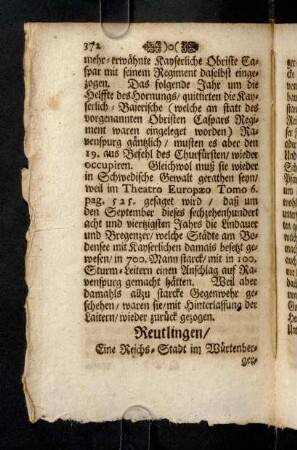 372
mehr-erwähnte Kayserliche Obriste Ca-
spar mit seinem Regiment daselbst einge-
zogen. Das folgende Jahr um die
Helffte des Hornungs/ quittirten die Kay-
serlich-Baierische (welche an statt des
vorgenannten Obristen Caspars Regi-
ment waren eingeleget worden) Ra-
venspurg gäntzlich/ musten es aber den
19. aus Befehl des Churfürsten/ wieder
occupiren. Gleichwol muß sie wieder
in Schwedische Gewalt gerathen seyn/
weil im Theatro Europæo Tomo 6.
pag. 525. gesaget wird/ daß um
den September dieses sechzehenhundert
acht und vierzigsten Jahrs die Lindauer
und Bregenzer/ welche Städte am Bo-
densee mit Kayserlichen damals besetzt ge-
wesen/ in 700. Mann starck/ mit in 100.
Sturm-Leitern einen Anschlag auf Ra-
venspurg gemacht hätten. Weil aber
damahls allzu starcke Gegenwehr ge-
schehen/ waren sie/ mit Hinterlassung der
Laitern/ wieder zurück gezogen.
Reutlingen/
Eine Reichs-Stadt im Würtenber-
ger-